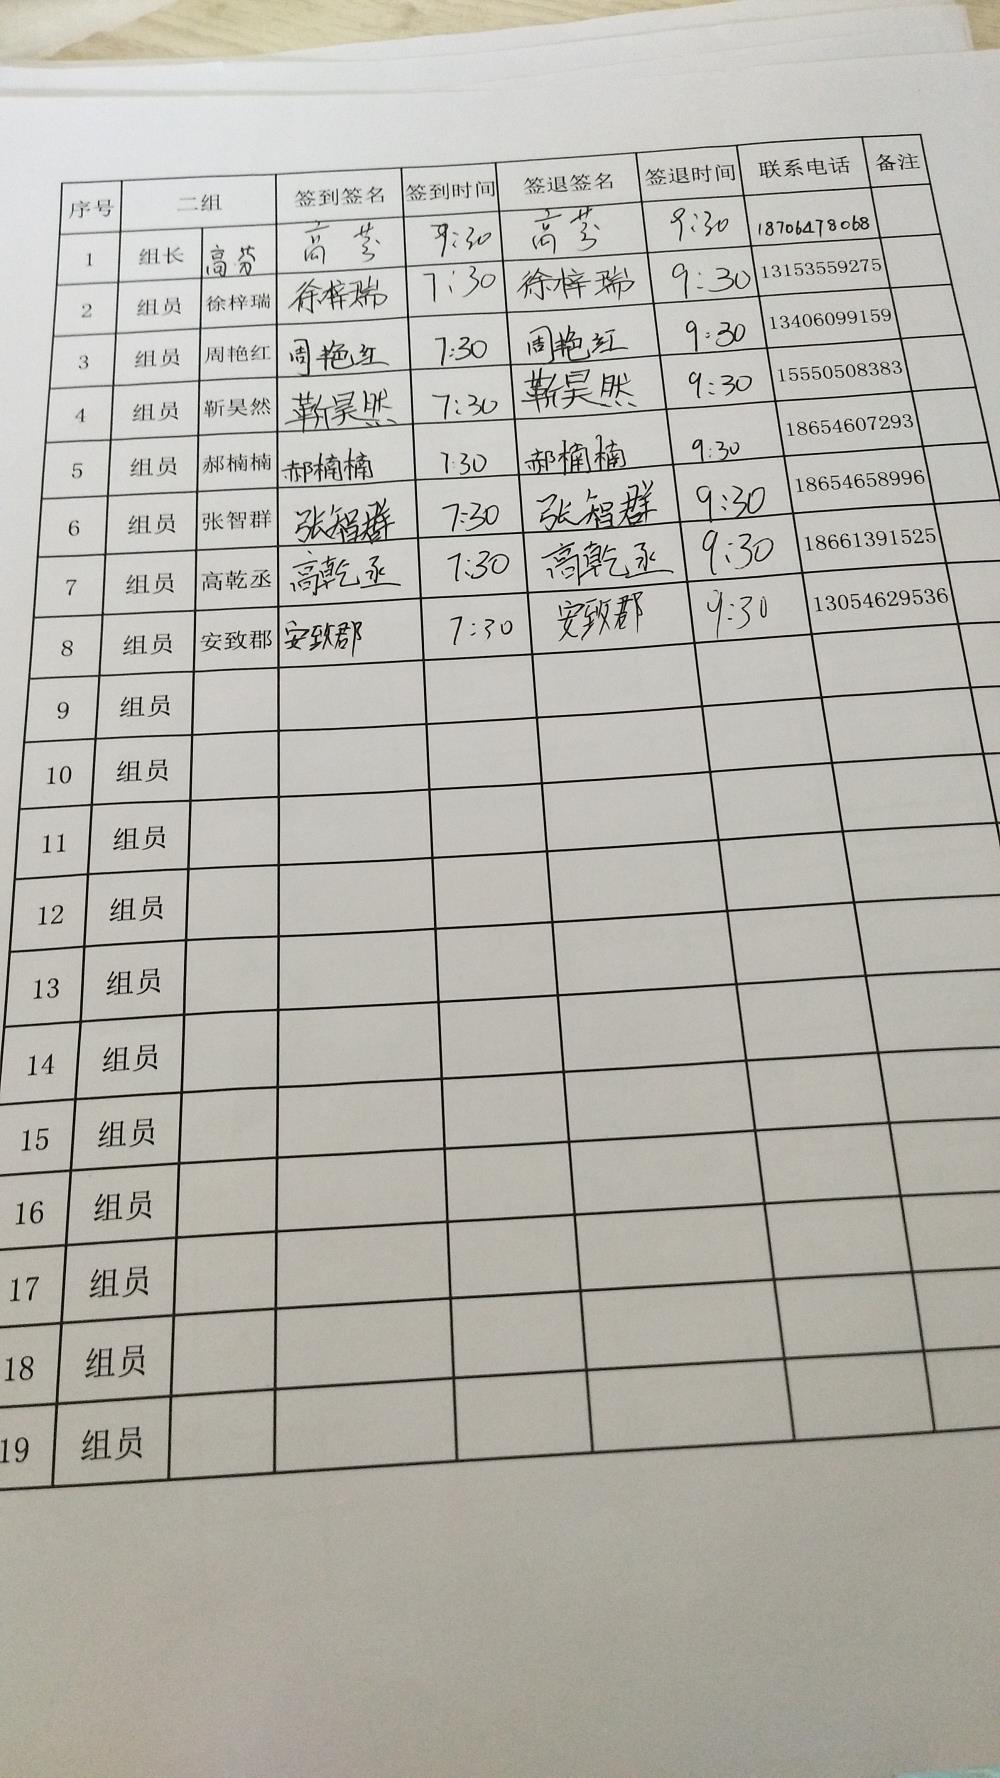 序号 二组 签到签名 签到时间 签退签名 签退时间 联系电话 备注
1 组长 高芬 高芬 9:30 高芬 9:30 18706478068
2 组员 徐梓瑞 徐梓瑞 7:30 徐梓瑞 9:30 13153559275
3 组员 周艳红 周艳红 7:30 周艳红 9:30 13406099159
4 组员 靳昊然 靳昊然 7:30 靳昊然 9:30 15550508383
5 组员 郝楠楠 郝楠楠 7:30 郝楠楠 9:30 18654607293
6 组员 张智群 张智群 7:30 张智群 9:30 18654658996
7 组员 高乾丞 高乾丞 7:30 高乾丞 9:30 18661391525
8 组员 安致郡 安致郡 7:30 安致郡 9:30 13054629536
9 组员
10 组员
11 组员
12 组员
13 组员
14 组员
15 组员
16 组员
17 组员
18 组员
19 组员